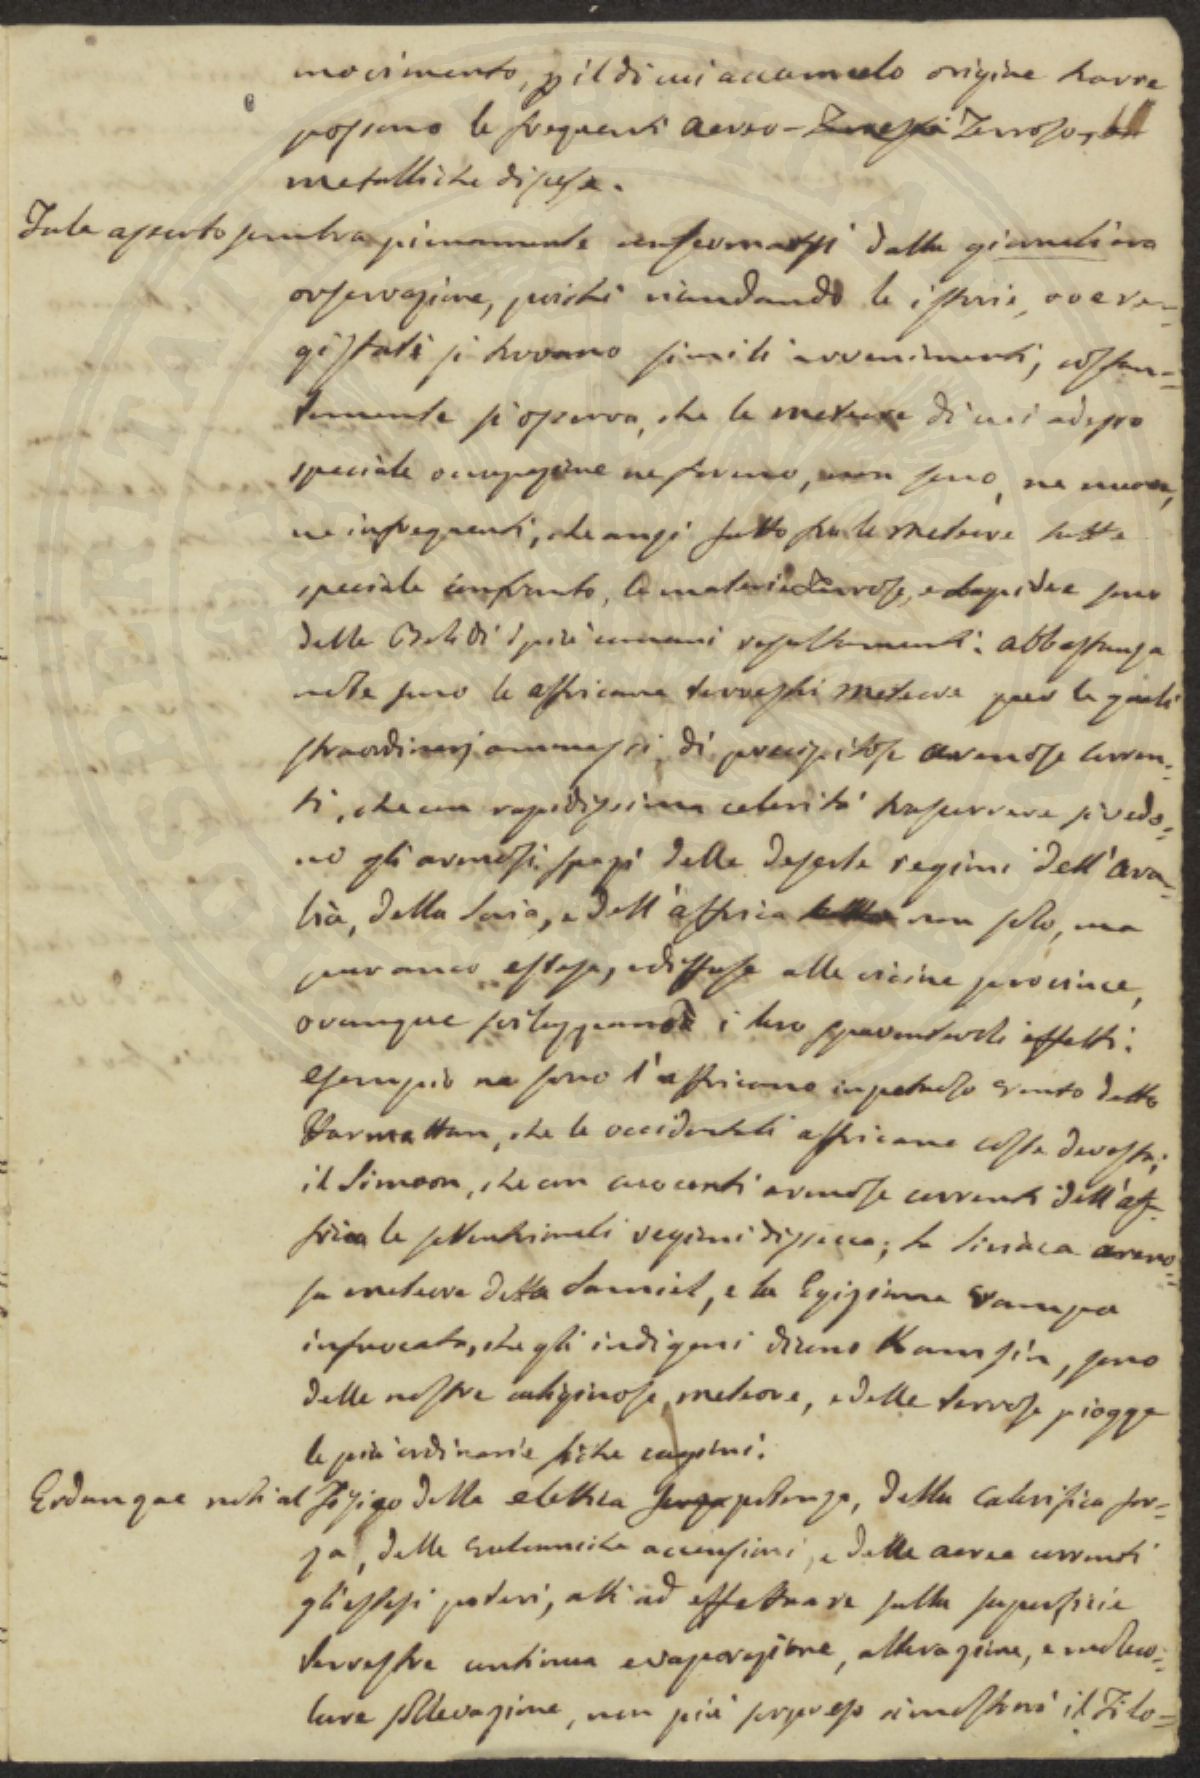 movimento, p il di cui accumulo origine havre
possano le frequenti aereo - Terrestri Terroso,
metalliche discese.
Tale asserto sembra pienamente confermarsi dalla giornaliera
osservazione, poiché riandando le istorie, ove re=
gistrati si trovano simili avvenimenti, costan=
temente si osserva, che le meteore di cui adesso
speciale occupazione ne faremo, non sono, ne nuove,
ne infrequenti, che anzi fatto fra le meteore tutte
speciale confronto, le materie Terrose, e lapidee sono
delle Bolidi i più comuni resultamenti: abbastanza
note sono le affricane terrestri meteore per le quali
straordinarj ammassi di precipitose arenose corren=
ti, che con rapidissima celerità trascorrere si vedo=
no gli arenosi spazi delle deserte regioni dell'Ara=
bia, della Soria, e dell'affrica non solo, ma
pur anco estese, e diffuse alle vicine provincie,
ovunque sviluppando i loro spaventevoli effetti:
Esempio ne sono l'affricano impetuoso vento detto
Harmattan, che le occidentali affricane coste devasta;
il Simoon, che con cuocenti arenose correnti dell'af=
frica le settentrionali regioni dissecca; la Siriaca areno=
sa meteora detta Samiel, e la Egiziana vampa
infuocata, che gli indigeni dicono Kamsin, sono
delle nostre caliginose meteore, e delle terrose piogge
le più ordinarie fisiche cagioni.
Or dunque noti al Fisico della elettrica forza potenza, della calorifica for=
za, delle vulcaniche accensioni, e delle aeree correnti
gli estesi poteri, atti ad effettuare sulla superficie
terrestre continua evaporazione, alterazione, e molleco=
lare sollevazione, non più sorpreso rimostrasi il Filo=